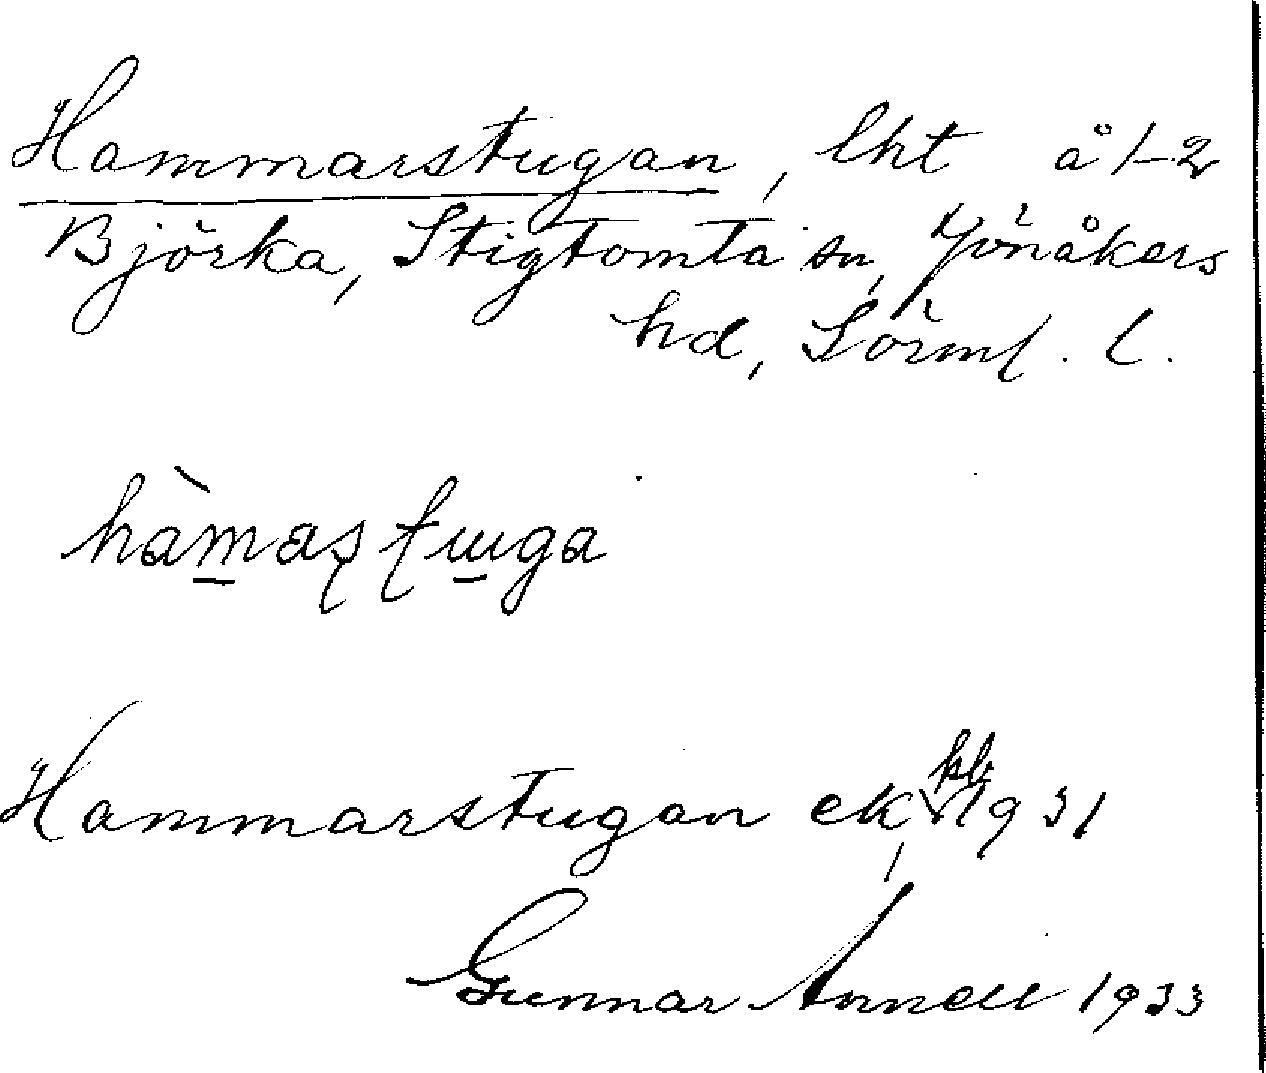 Hammarstugan, lht å 1-2
Björka, Stigtomta sn, Jönåkers
hd, Sörml. l.
Hammarstugan ek, kb 1931
Gunnar Annell 1933